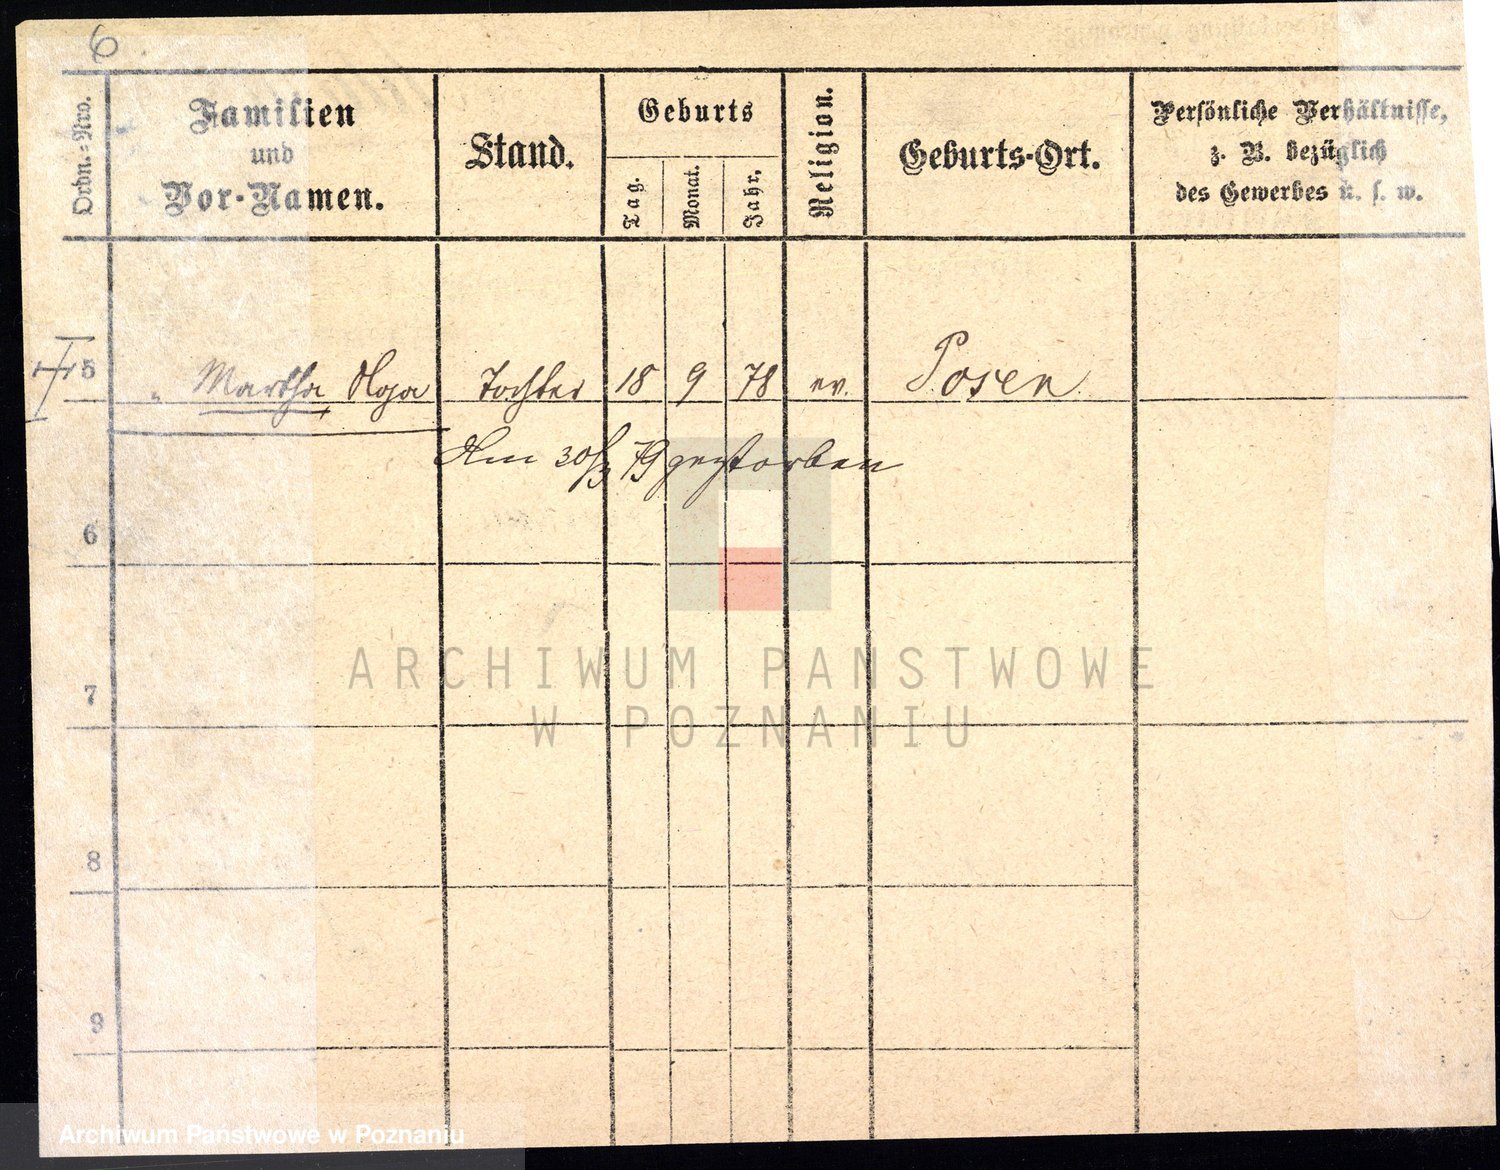 6
Ordn.=Nro.
Familien
und
Vor-Namen.
Stand.
Geburts
Tag.
Monat.
Jahr.
Religion.
Geburts-Ort.
Persönliche Verhältnisse,
z. B. bezüglich
des Gewerbes u. s. w.
5 " Martha Olga Tochter 18 9 78 ev. Posen
Am 30/3 79 gestorben
6
7
8
9
ARCHIWUM PANSTWOWE
W POZNANIU
Archiwum Państwowe w Poznaniu